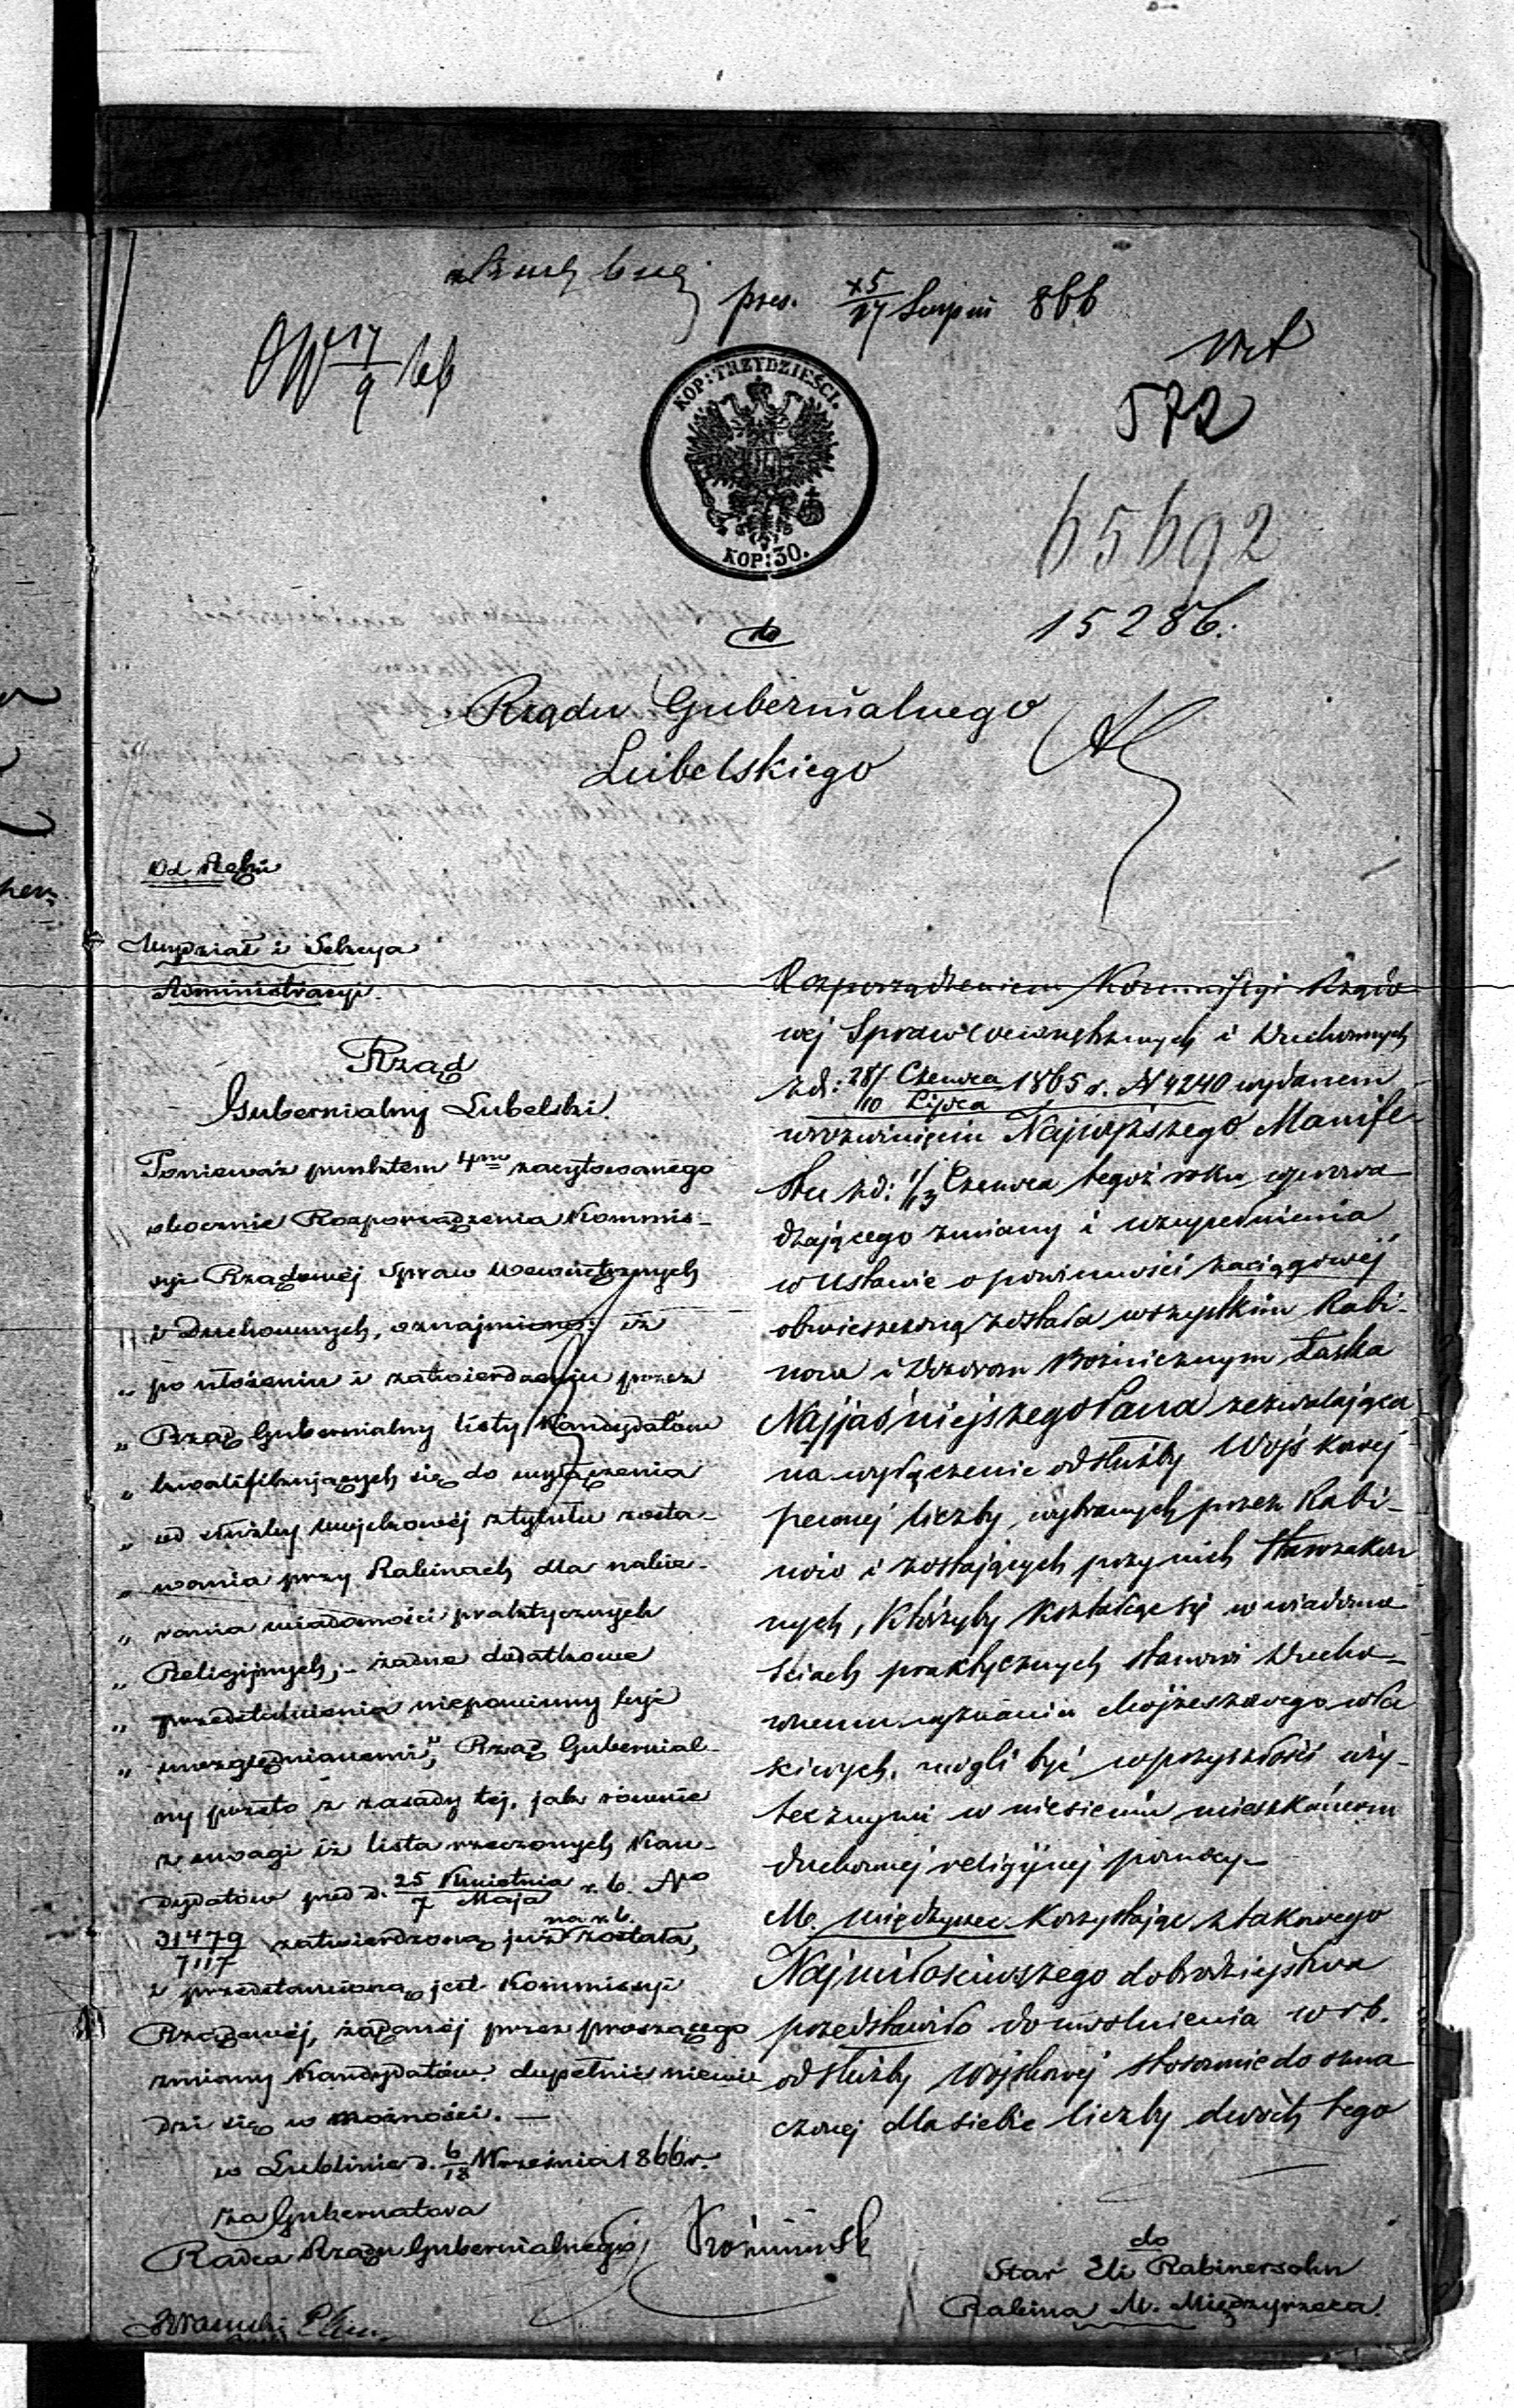 pres. 5/17 Sierpnia 866
OW 17/9 66
572
KOP: TRZYDZIEŚCI.
KOP: 30.
65692
15286.
do
Rządu Gubernialnego
Lubelskiego
Od Ręki
Wydział i Sekcya
Administracyi.
Rząd
Gubernialny Lubelski.
Ponieważ punktem 4m zacytowanego
obocznie Rozporządzenia Kommis-
syi Rządowéj Spraw Wewnętrznych
i Duchownych, oznajmiono: iż
„ po ułożeniu i zatwierdzeniu przez
„ Rząd Gubernialny listy Kandydatów
„ kwalifikujących się do wyłączenia
„ od służby wojskowéj z tytułu zosta-
„ wania przy Rabinach dla nabie-
„ rania wiadomości praktycznych
„ Religijnych; - żadne dodatkowe
„ przedstawienia niepowinny być
„ uwzględnianemi", Rząd Gubernial-
ny przeto z zasady téj, jak równie
z uwagi iż lista rzeczonych Kan-
dydatów pod d. 25 Kwietnia / 7 Maja r. b. No
31479/7117 zatwierdzoną już na r. b. została,
i przedstawioną jest Kommissyi
Rządowéj, żądanéj przez proszącego
zmiany Kandydatów dopełnić niewi-
dzi się w możności. —
w Lublinie d. 6/18 Września 1866 r.
za Gubernatora
Radca Rządu Gubernialnego
Rozporządzeniem Kommissyi Rządo-
wej Spraw Wewnętrznych i Duchownych
z d: 28 Czerwca / 10 Lipca 1865 r. N 4240 wydanem
w rozwinięciu Najwyższego Manife-
stu z d: 1/13 Czerwca tegoż roku wprowa-
dzającego zmiany i uzupełnienia
w Ustawie o powinności zaciągowej
obwieszczoną została wszystkim Rabi-
nom i Dozorom Bożniczym Łaska
Najjaśniejszego Pana zezwalająca
na wyłączenie od służby Wojskowej
pewnej liczby, wybranych przez Rabi-
nów i zostających przy nich Starozakon
nych, którzyby kształcąc się w wiadomo
ściach praktycznych stanowi Ducho-
wnemu wyznania Mojżeszowego wła
ściwych, mogli być w przyszłości uży-
tecznymi w niesieniu mieszkańcom
duchownej religijnej pomocy.-
M. Międzyrzec korzystając z takowego
Najmiłościwszego dobrodziejstwa
przedstawiło do uwolnienia w r b.
od służby Wojskowej stosownie do ozna
czonej dla siebie liczby dwóch tego
do
Star Eli Rabinersohn
Rabina M. Międzyrzeca.